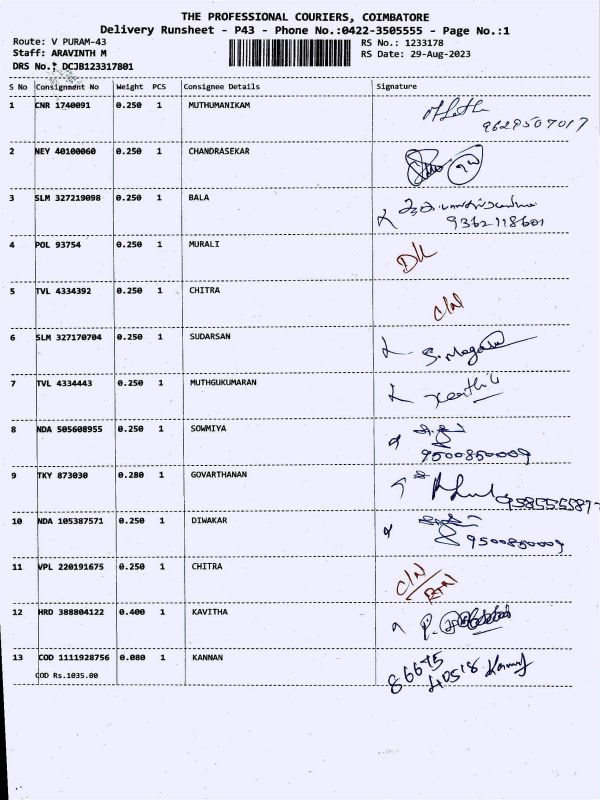 THE PROFESSIONAL COURIERS, COIMBATORE
Delivery Runsheet - P43 - Phone No.:0422-3505555 - Page No.:1
Route: V PURAM-43 RS No.: 1233178
Staff: ARAVINTH M RS Date: 29-Aug-2023
DRS No.: DCJB123317801
S No Consignment No Weight PCS Consignee Details Signature
1 CNR 1740091 0.250 1 MUTHUMANIKAM
9629507017
2 NEY 40100060 0.250 1 CHANDRASEKAR
3 SLM 327219098 0.250 1 BALA
9362118601
4 POL 93754 0.250 1 MURALI DL
5 TVL 4334392 0.250 1 CHITRA C/N
6 SLM 327170704 0.250 1 SUDARSAN
7 TVL 4334443 0.250 1 MUTHGUKUMARAN
8 NDA 505608955 0.250 1 SOWMIYA
9500850009
9 TKY 873030 0.280 1 GOVARTHANAN
10 NDA 105387571 0.250 1 DIWAKAR
9500850009
11 VPL 220191675 0.250 1 CHITRA C/N
RTN
12 HRD 388804122 0.400 1 KAVITHA
13 COD 1111928756 0.080 1 KANNAN 86675
COD Rs.1035.00 40518